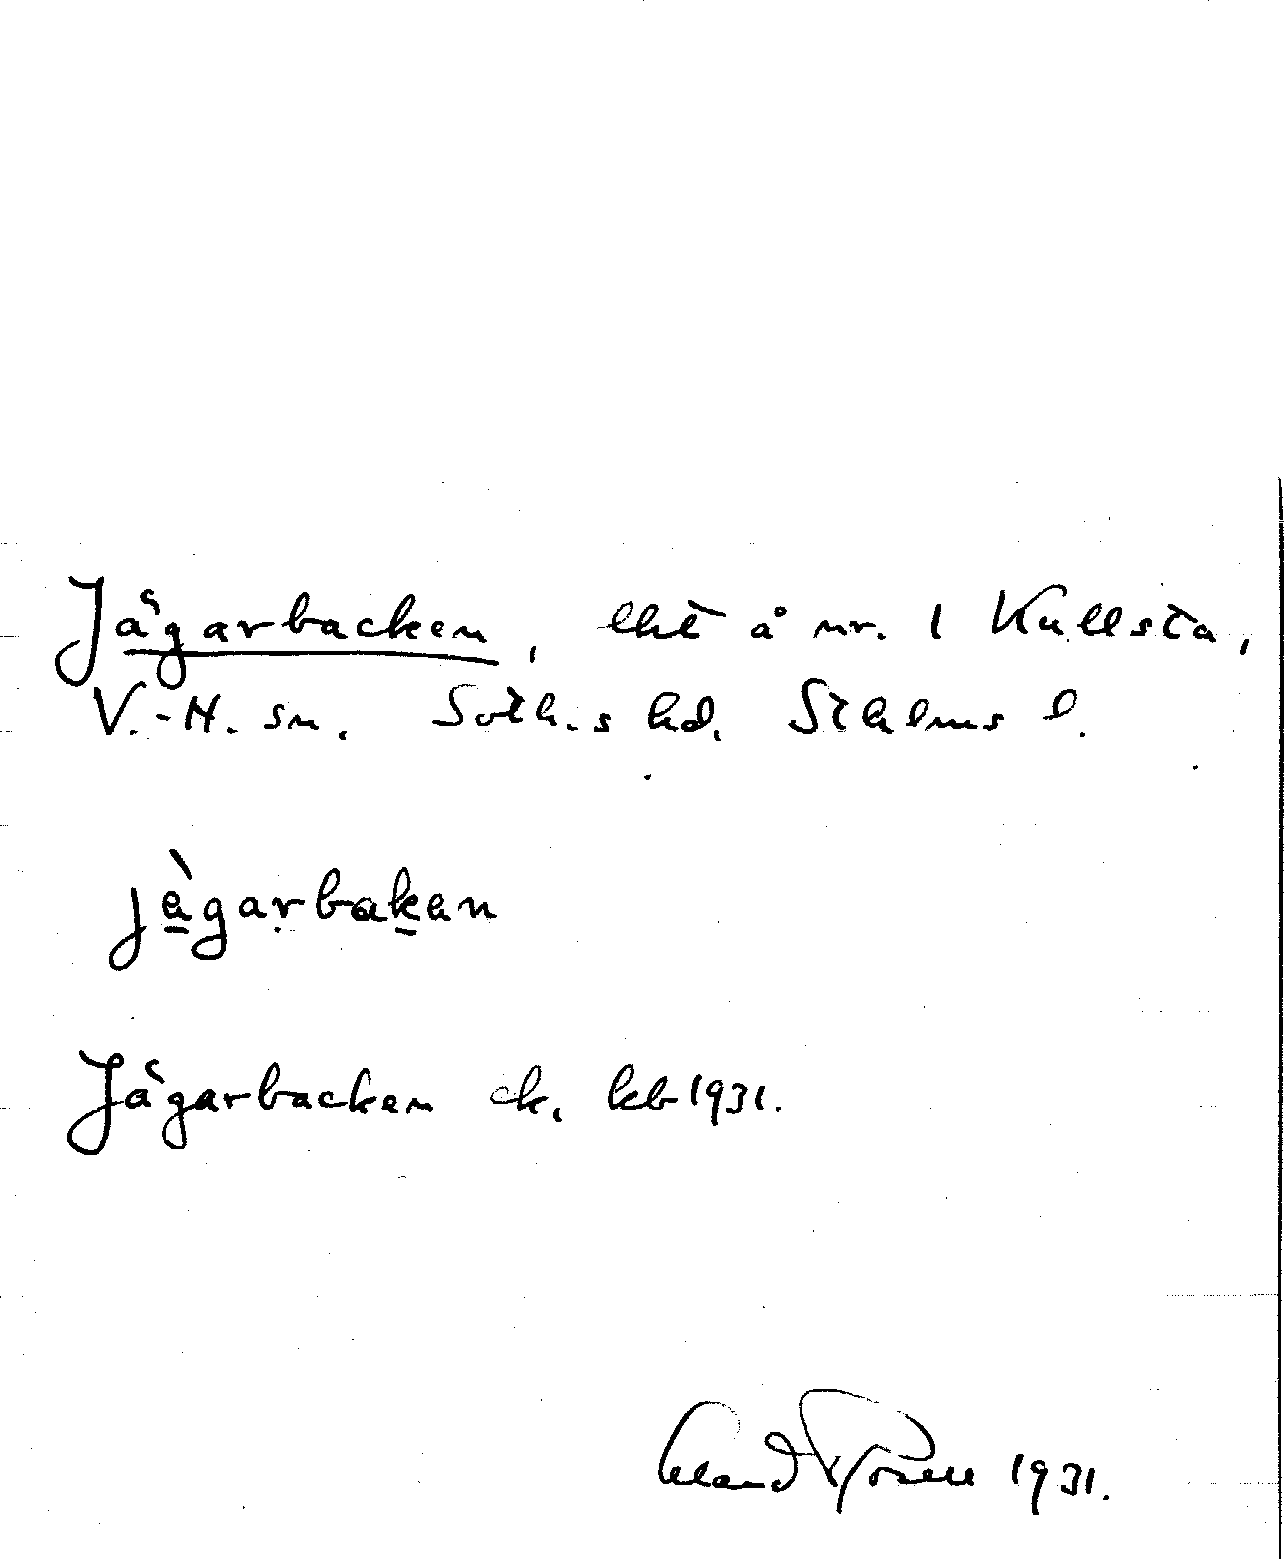 Jägarbacken, lht å nr. 1 Kullsta,
V.-H. sn. Soth.s hd. Sthlms l.
jàgarbakan
Jägarbacken ck. kb 1931.
1931.